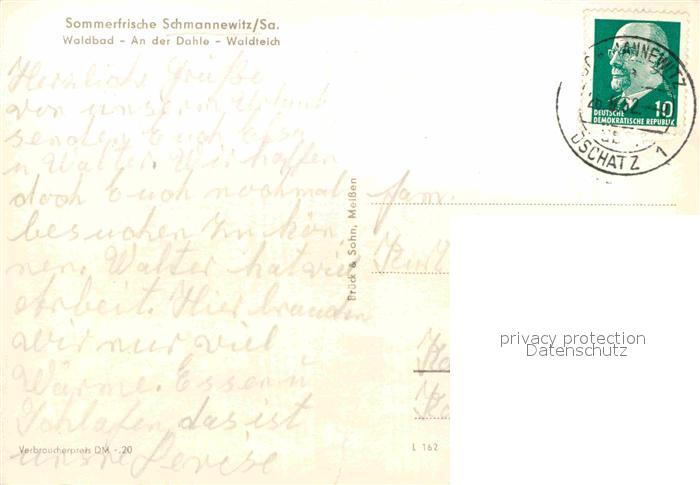 Sommerfrische Schmannewitz/Sa.
Waldbad - An der Dahle - Waldteich
Herzliche Grüße
von unserm Urlaub
senden Euch
u Walter. Wir hoffen
doch Euch nochmal
besuchen zu kön
nen. Walter hat viel
Arbeit. Hier brauchen
wir nur viel
Wärme. Essen u
Schlafen, das ist
unsre Devise
Verbraucherpreis DM -.20
Brück & Sohn, Meißen
L 162
Fam.
Kurt
10
DEUTSCHE
DEMOKRATISCHE REPUBLIK
ANNEWITZ
OSCHATZ 1
privacy protection
Datenschutz